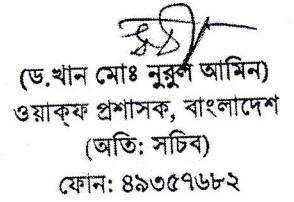 (ড.খান মোঃ নুরুল আমিন)
ওয়াক্‌ফ প্রশাসক, বাংলাদেশ
(অতি: সচিব)
ফোন: ৪৯৩৫৭৬৮২